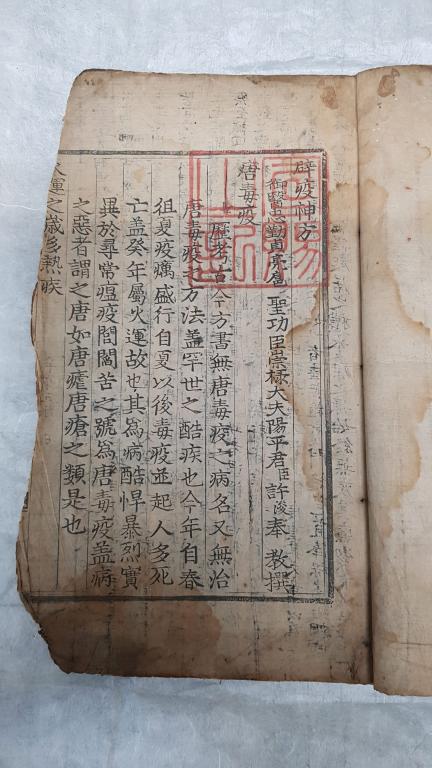 辟疫神方
御醫忠勤貞亮扈 聖功臣崇祿大夫陽平君臣許浚奉 教撰
唐毒疫
歷考古今方書無唐毒疫之病名又無治
唐毒疫之方法盖罕世之酷疾也今年自春
徂夏疫癘盛行自夏以後毒疫並起人多死
亡盖癸年屬火運故也其爲病酷悍暴烈實
異於尋常瘟疫閭閻苦之號爲唐毒疫盖病
之惡者謂之唐如唐瘧唐瘡之類是也
火運之歲多熱疾